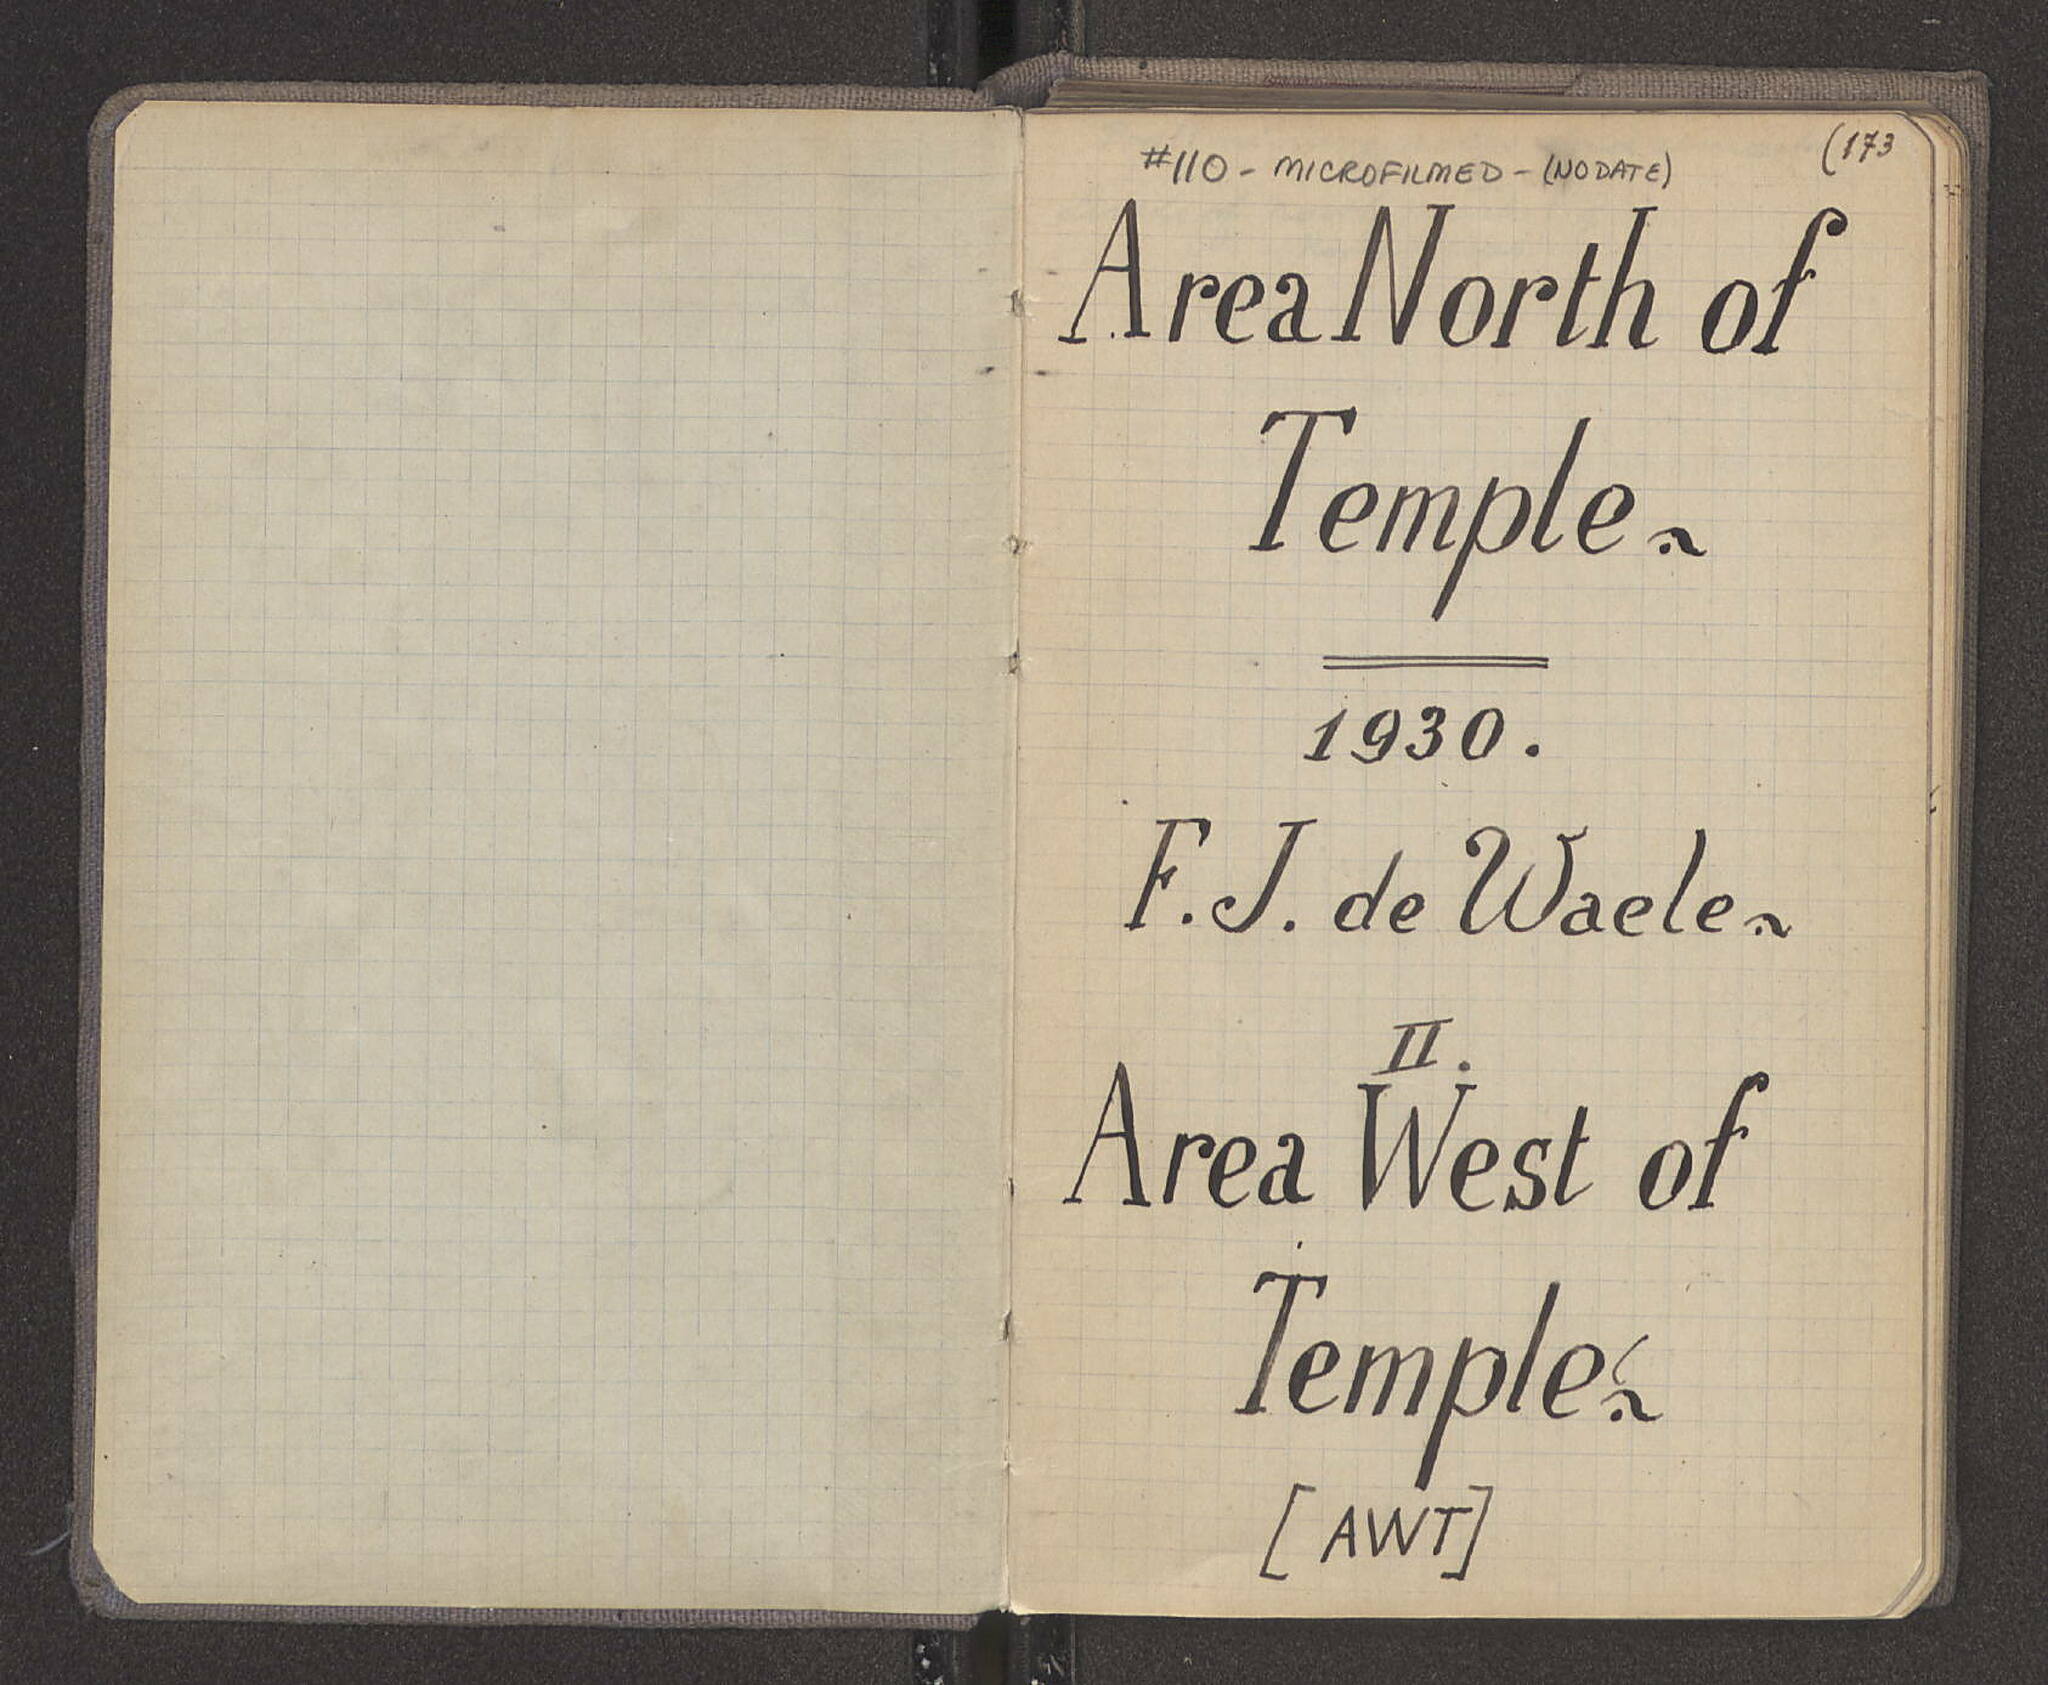 #110 - MICROFILMED - (NO DATE)
(173
Area North of
Temple.
1930.
F. J. de Waele.
II.
Area West of
Temple.
[AWT]